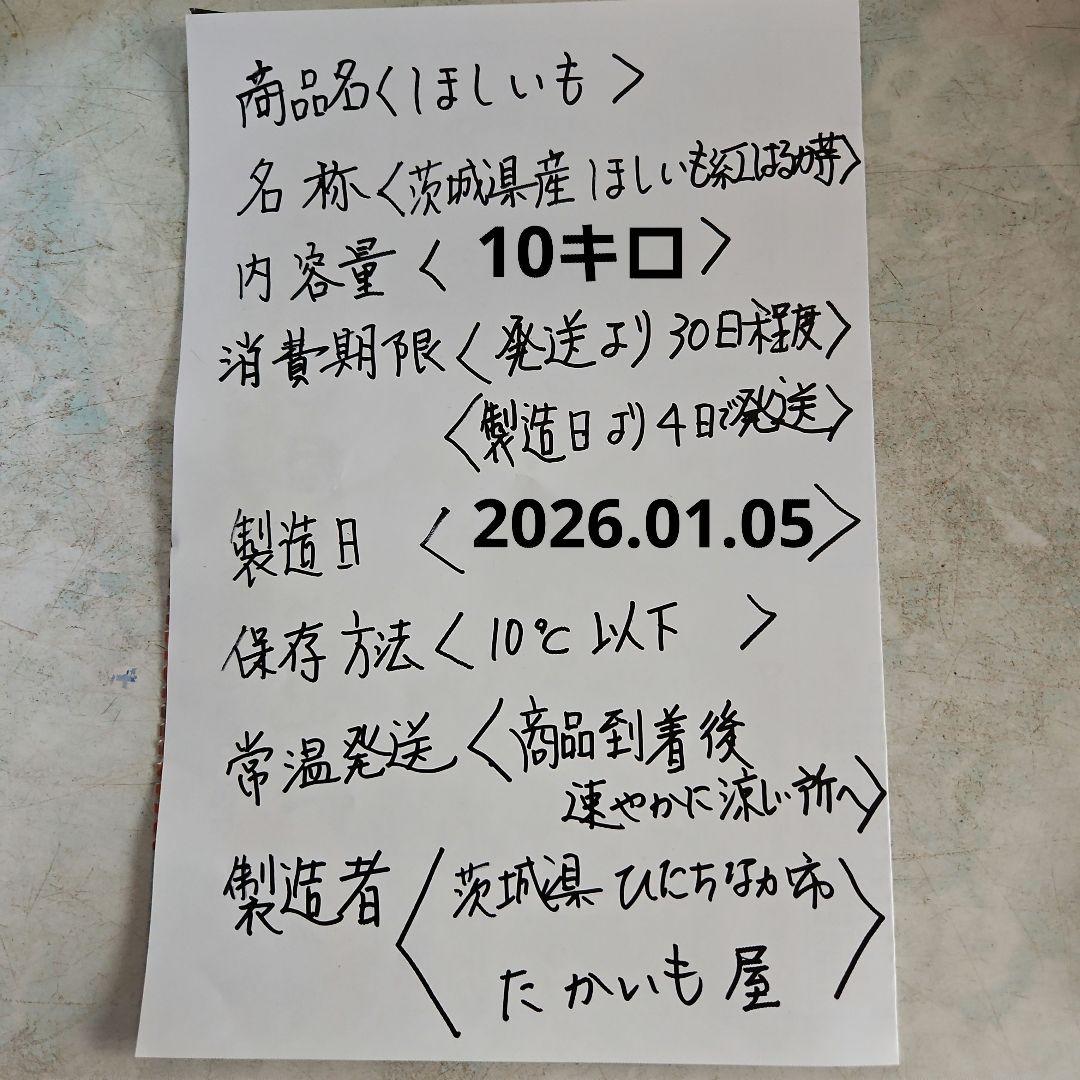 商品名〈ほしいも〉
名称〈茨城県産ほしいも紅はるか芋〉
内容量〈10キロ〉
消費期限〈発送より30日程度〉
〈製造日より4日で発送〉
製造日〈2026.01.05〉
保存方法〈10℃以下〉
常温発送〈商品到着後
速やかに涼しい所へ〉
製造者〈茨城県ひたちなか市
たかいも屋〉